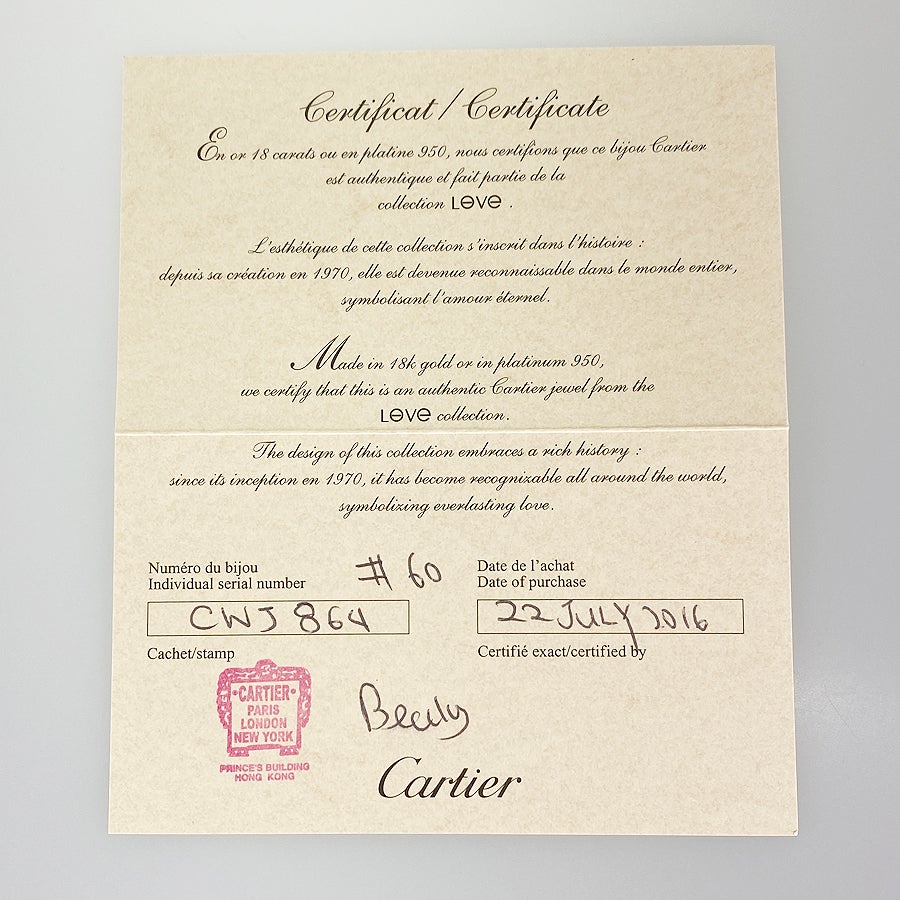 Certificat / Certificate
En or 18 carats ou en platine 950, nous certifions que ce bijou Cartier
est authentique et fait partie de la
collection LOVE .
L'esthétique de cette collection s'inscrit dans l'histoire :
depuis sa création en 1970, elle est devenue reconnaissable dans le monde entier,
symbolisant l'amour éternel.
Made in 18k gold or in platinum 950,
we certify that this is an authentic Cartier jewel from the
LOVE collection.
The design of this collection embraces a rich history :
since its inception en 1970, it has become recognizable all around the world,
symbolizing everlasting love.
Numéro du bijou
Individual serial number
# 60
CWJ 864
Date de l'achat
Date of purchase
22 JULY 2016
Cachet/stamp
Certifié exact/certified by
·CARTIER·
PARIS
LONDON
NEW YORK
PRINCE'S BUILDING
HONG KONG
Cartier